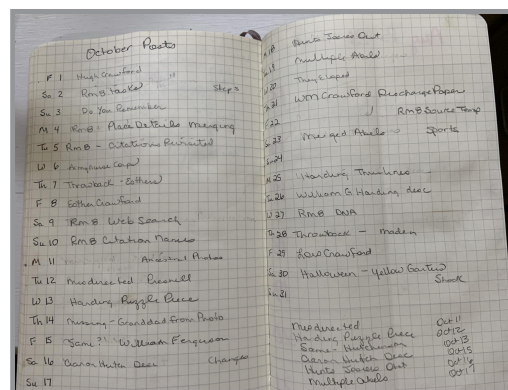 October Posts
F 1 Hugh Crawford
Sa 2 Rm8 Tasks "
Step 3
Su 3 Do You Remember
M 4 Rm8: Place Details Merging
Tu 5 Rm8 - Citations Revisited
W 6
Th 7 Throwback - Esther
F 8 Esther Crawford
Sa 9 Rm8 Web Search
Su 10 Rm8 Citation Names
M 11 Ancestral Photos
Tu 12 Misdirected
W 13 Harding Puzzle Piece
Th 14 Missing - Granddad from Photo
F 15 Same?! William Ferguson
Sa 16 Aaron Hutch Desc Changes
Su 17
18 Hunts Joanes Out
19 Multiple Abels
20 They Eloped
21 WM Crawford Discharge Paper
22 Rm8 Source Temp
23 Merged Abels - Sports
24
M 25 Harding Thursday
Tu 26 William G Harding desc
W 27 Rm8 DNA
Th 28 Throwback -
F 29 Crawford
Sa 30 Halloween - Yellow Garter
Su 31
Misdirected Oct 11
Harding Puzzle Piece Oct 12
Same - Hutchison Oct 13
Aaron Hutch Desc Oct 15
Hunts Joanes Out Oct 16
Multiple Abels Oct 17